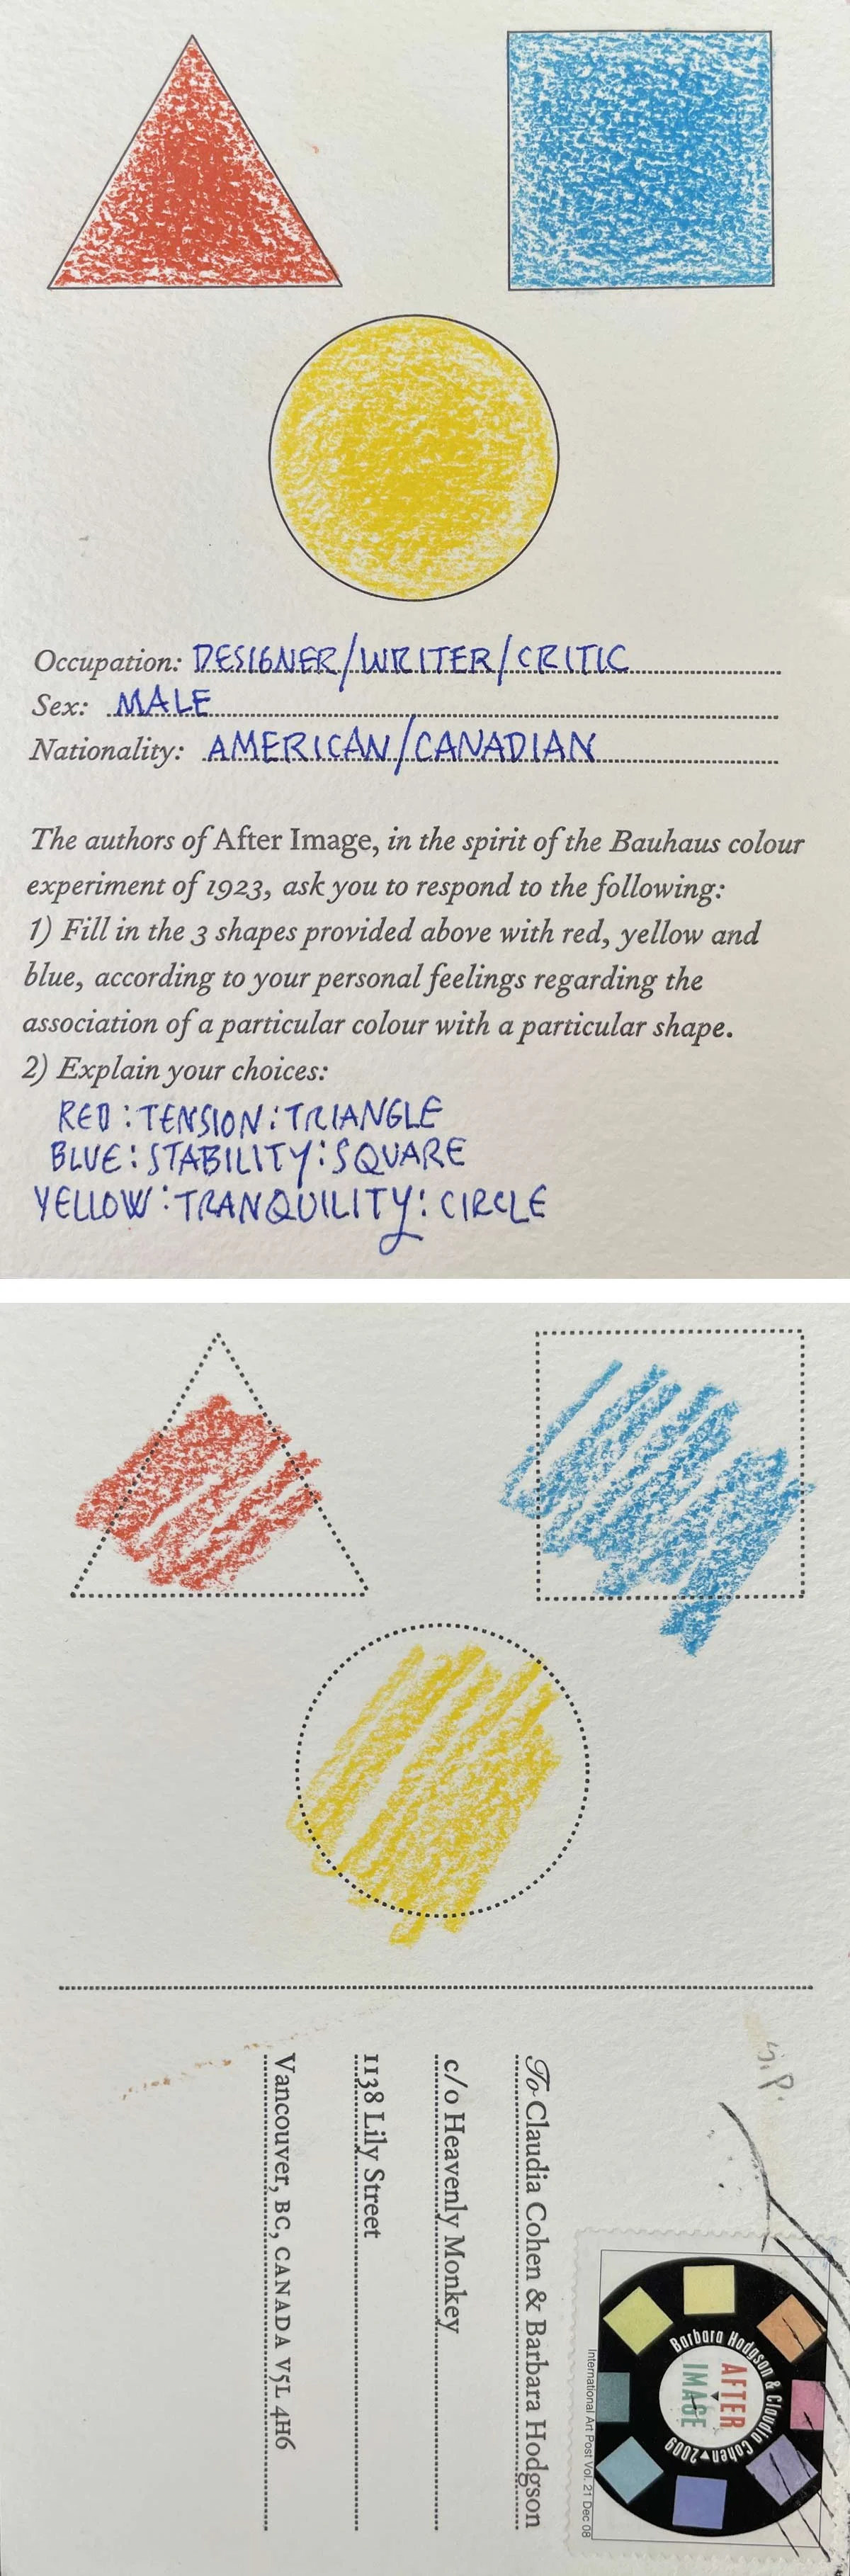 Occupation: DESIGNER/WRITER/CRITIC
Sex: MALE
Nationality: AMERICAN/CANADIAN
The authors of After Image, in the spirit of the Bauhaus colour
experiment of 1923, ask you to respond to the following:
1) Fill in the 3 shapes provided above with red, yellow and
blue, according to your personal feelings regarding the
association of a particular colour with a particular shape.
2) Explain your choices:
RED : TENSION : TRIANGLE
BLUE : STABILITY : SQUARE
YELLOW : TRANQUILITY : CIRCLE
S.P.
To Claudia Cohen & Barbara Hodgson
c/o Heavenly Monkey
1138 Lily Street
Vancouver, BC, CANADA V5L 4H6
Barbara Hodgson & Claudia Cohen 2009
AFTER
IMAGE
International Art Post Vol. 21 Dec 08